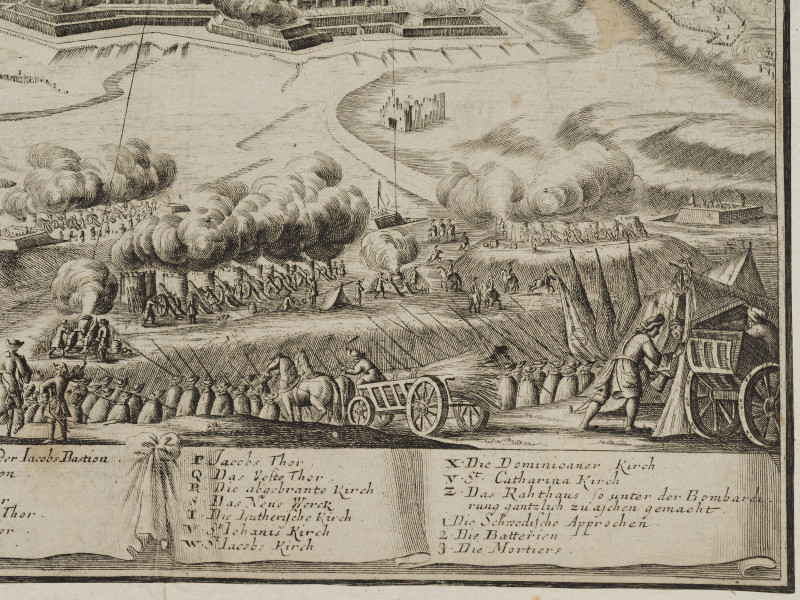 der Jacobs Bastion
on.
or
Thor.
or.
P. Jacobs Thor
Q Das Veste Thor.
R Die abgebrante Kirch
S Das Neue Werck
T Die Luthersche Kirch
V St Iohanis Kirch
W St Jacobs Kirch
X. Die Dominicaner Kirch
Y St. Catharina Kirch
Z. Das Rahthaus so unter der Bombardi-
rung gantzlich zu aschen gemacht
1. Die Schwedische Approchen
2. Die Batterien
3. Die Mortiers.